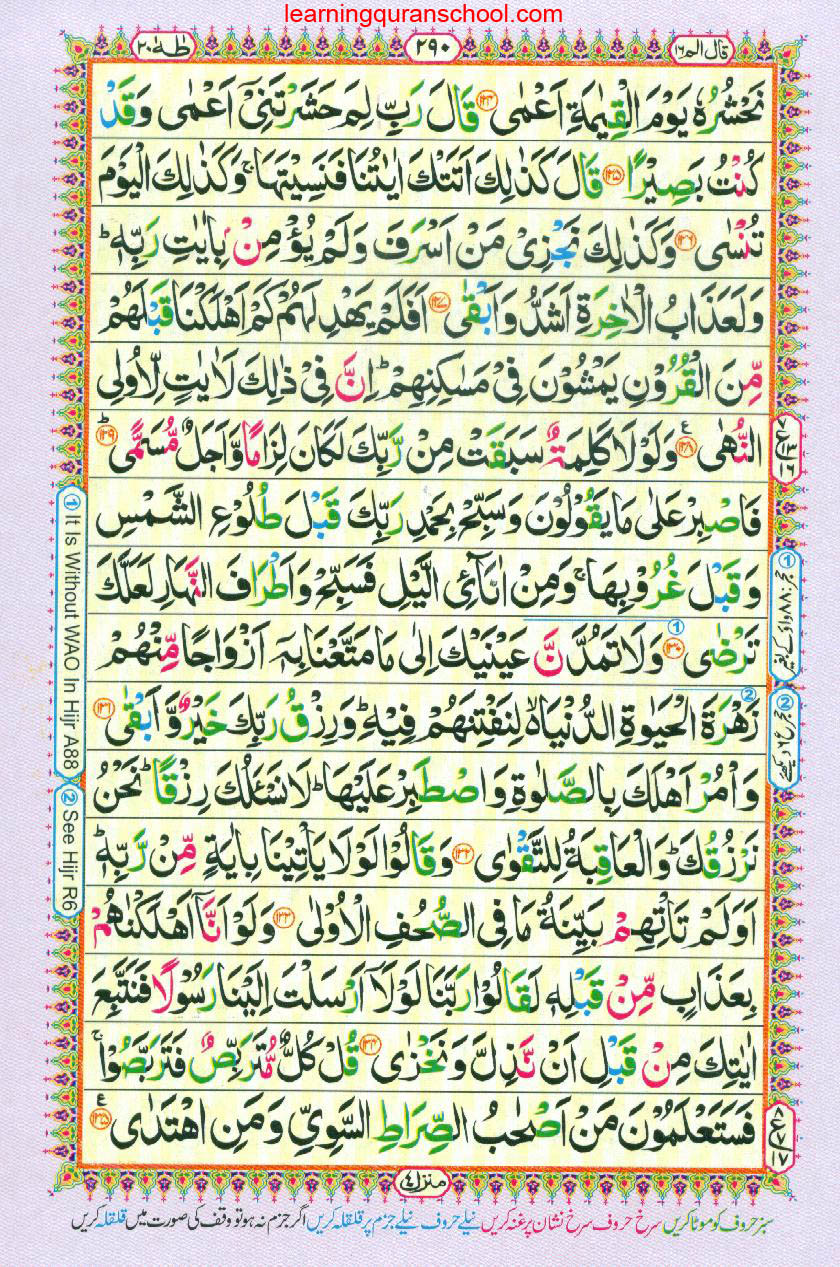 learningquranschool.com
قال الم ١٦
٢٩٠
طٰهٰ ٢٠
نَحْشُرُهٗ يَوْمَ الْقِيٰمَةِ اَعْمٰى ﴿۱۲۴﴾ قَالَ رَبِّ لِمَ حَشَرْتَنِيْۤ اَعْمٰى وَقَدْ
كُنْتُ بَصِيْرًا ﴿۱۲۵﴾ قَالَ كَذٰلِكَ اَتَتْكَ اٰيٰتُنَا فَنَسِيْتَهَا ۚ وَكَذٰلِكَ الْيَوْمَ
تُنْسٰى ﴿۱۲۶﴾ وَكَذٰلِكَ نَجْزِيْ مَنْ اَسْرَفَ وَلَمْ يُؤْمِنْۢ بِاٰيٰتِ رَبِّهٖ ؕ
وَلَعَذَابُ الْاٰخِرَةِ اَشَدُّ وَاَبْقٰى ﴿۱۲۷﴾ اَفَلَمْ يَهْدِ لَهُمْ كَمْ اَهْلَكْنَا قَبْلَهُمْ
مِّنَ الْقُرُوْنِ يَمْشُوْنَ فِيْ مَسٰكِنِهِمْ ؕ اِنَّ فِيْ ذٰلِكَ لَاٰيٰتٍ لِّاُولِي
النُّهٰى ﴿۱۲۸﴾ ع وَلَوْلَا كَلِمَةٌ سَبَقَتْ مِنْ رَّبِّكَ لَكَانَ لِزَامًا وَّاَجَلٌ مُّسَمًّى ﴿۱۲۹﴾ ؕ
فَاصْبِرْ عَلٰى مَا يَقُوْلُوْنَ وَسَبِّحْ بِحَمْدِ رَبِّكَ قَبْلَ طُلُوْعِ الشَّمْسِ
وَقَبْلَ غُرُوْبِهَا ۚ وَمِنْ اٰنَآئِ الَّيْلِ فَسَبِّحْ وَاَطْرَافَ النَّهَارِ لَعَلَّكَ
تَرْضٰى ﴿۱۳۰﴾ ① وَلَا تَمُدَّنَّ عَيْنَيْكَ اِلٰى مَا مَتَّعْنَا بِهٖۤ اَزْوَاجًا مِّنْهُمْ
② زَهْرَةَ الْحَيٰوةِ الدُّنْيَا ۙ لِنَفْتِنَهُمْ فِيْهِ ؕ وَرِزْقُ رَبِّكَ خَيْرٌ وَّاَبْقٰى ﴿۱۳۱﴾
وَاْمُرْ اَهْلَكَ بِالصَّلٰوةِ وَاصْطَبِرْ عَلَيْهَا ؕ لَا نَسْئَلُكَ رِزْقًا ؕ نَحْنُ
نَرْزُقُكَ ؕ وَالْعَاقِبَةُ لِلتَّقْوٰى ﴿۱۳۲﴾ وَقَالُوْا لَوْلَا يَاْتِيْنَا بِاٰيَةٍ مِّنْ رَّبِّهٖ ؕ
اَوَلَمْ تَاْتِهِمْ بَيِّنَةُ مَا فِي الصُّحُفِ الْاُوْلٰى ﴿۱۳۳﴾ وَلَوْ اَنَّاۤ اَهْلَكْنٰهُمْ
بِعَذَابٍ مِّنْ قَبْلِهٖ لَقَالُوْا رَبَّنَا لَوْلَاۤ اَرْسَلْتَ اِلَيْنَا رَسُوْلًا فَنَتَّبِعَ
اٰيٰتِكَ مِنْ قَبْلِ اَنْ نَّذِلَّ وَنَخْزٰى ﴿۱۳۴﴾ قُلْ كُلٌّ مُّتَرَبِّصٌ فَتَرَبَّصُوْا ۚ
فَسَتَعْلَمُوْنَ مَنْ اَصْحٰبُ الصِّرَاطِ السَّوِيِّ وَمَنِ اهْتَدٰى ﴿۱۳۵﴾ ع
① It Is Without WAO In Hijr A88 ② See Hijr R6
① حجر: ۸۸ واؤ کے بغیر
② حجر ع ۶ دیکھئے
منزل ٤
سبز حروف کو موٹا کریں سرخ حروف سرخ نشان پر غنہ کریں نیلے حروف نیلے جزم پر قلقلہ کریں اگر جزم نہ ہو تو وقف کی صورت میں قلقلہ کریں